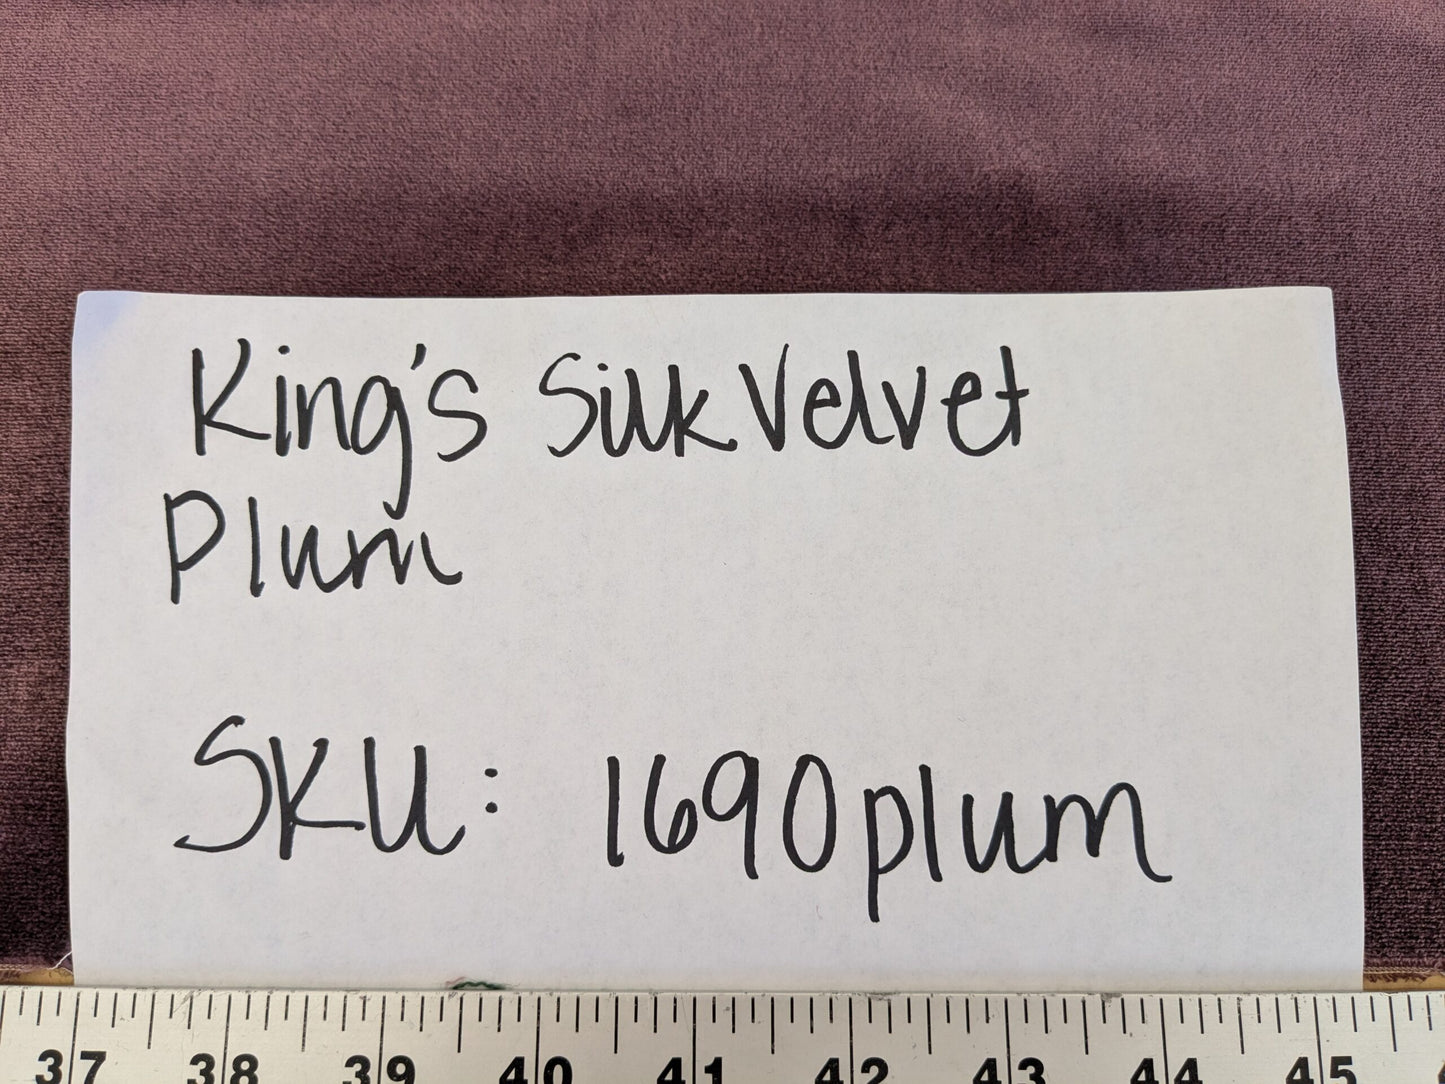 King's Silk Velvet
Plum
SKU: 1690plum
37 38 39 40 41 42 43 44 45